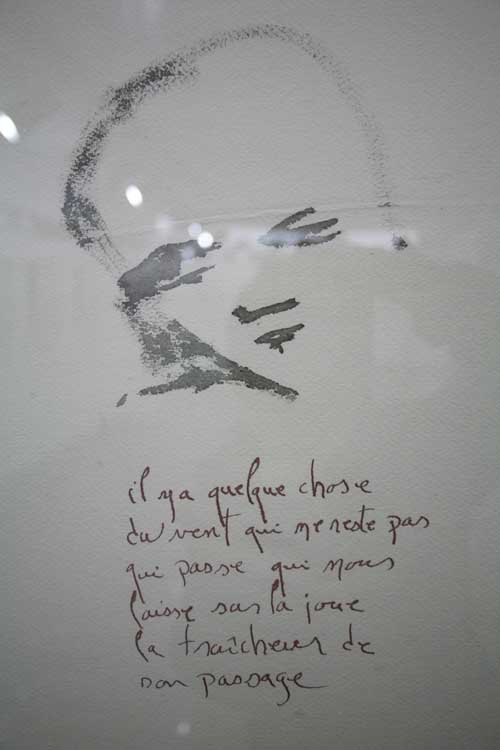 il y a quelque chose
du vent qui ne reste pas
qui passe qui nous
laisse sur la joue
la fraîcheur de
son passage